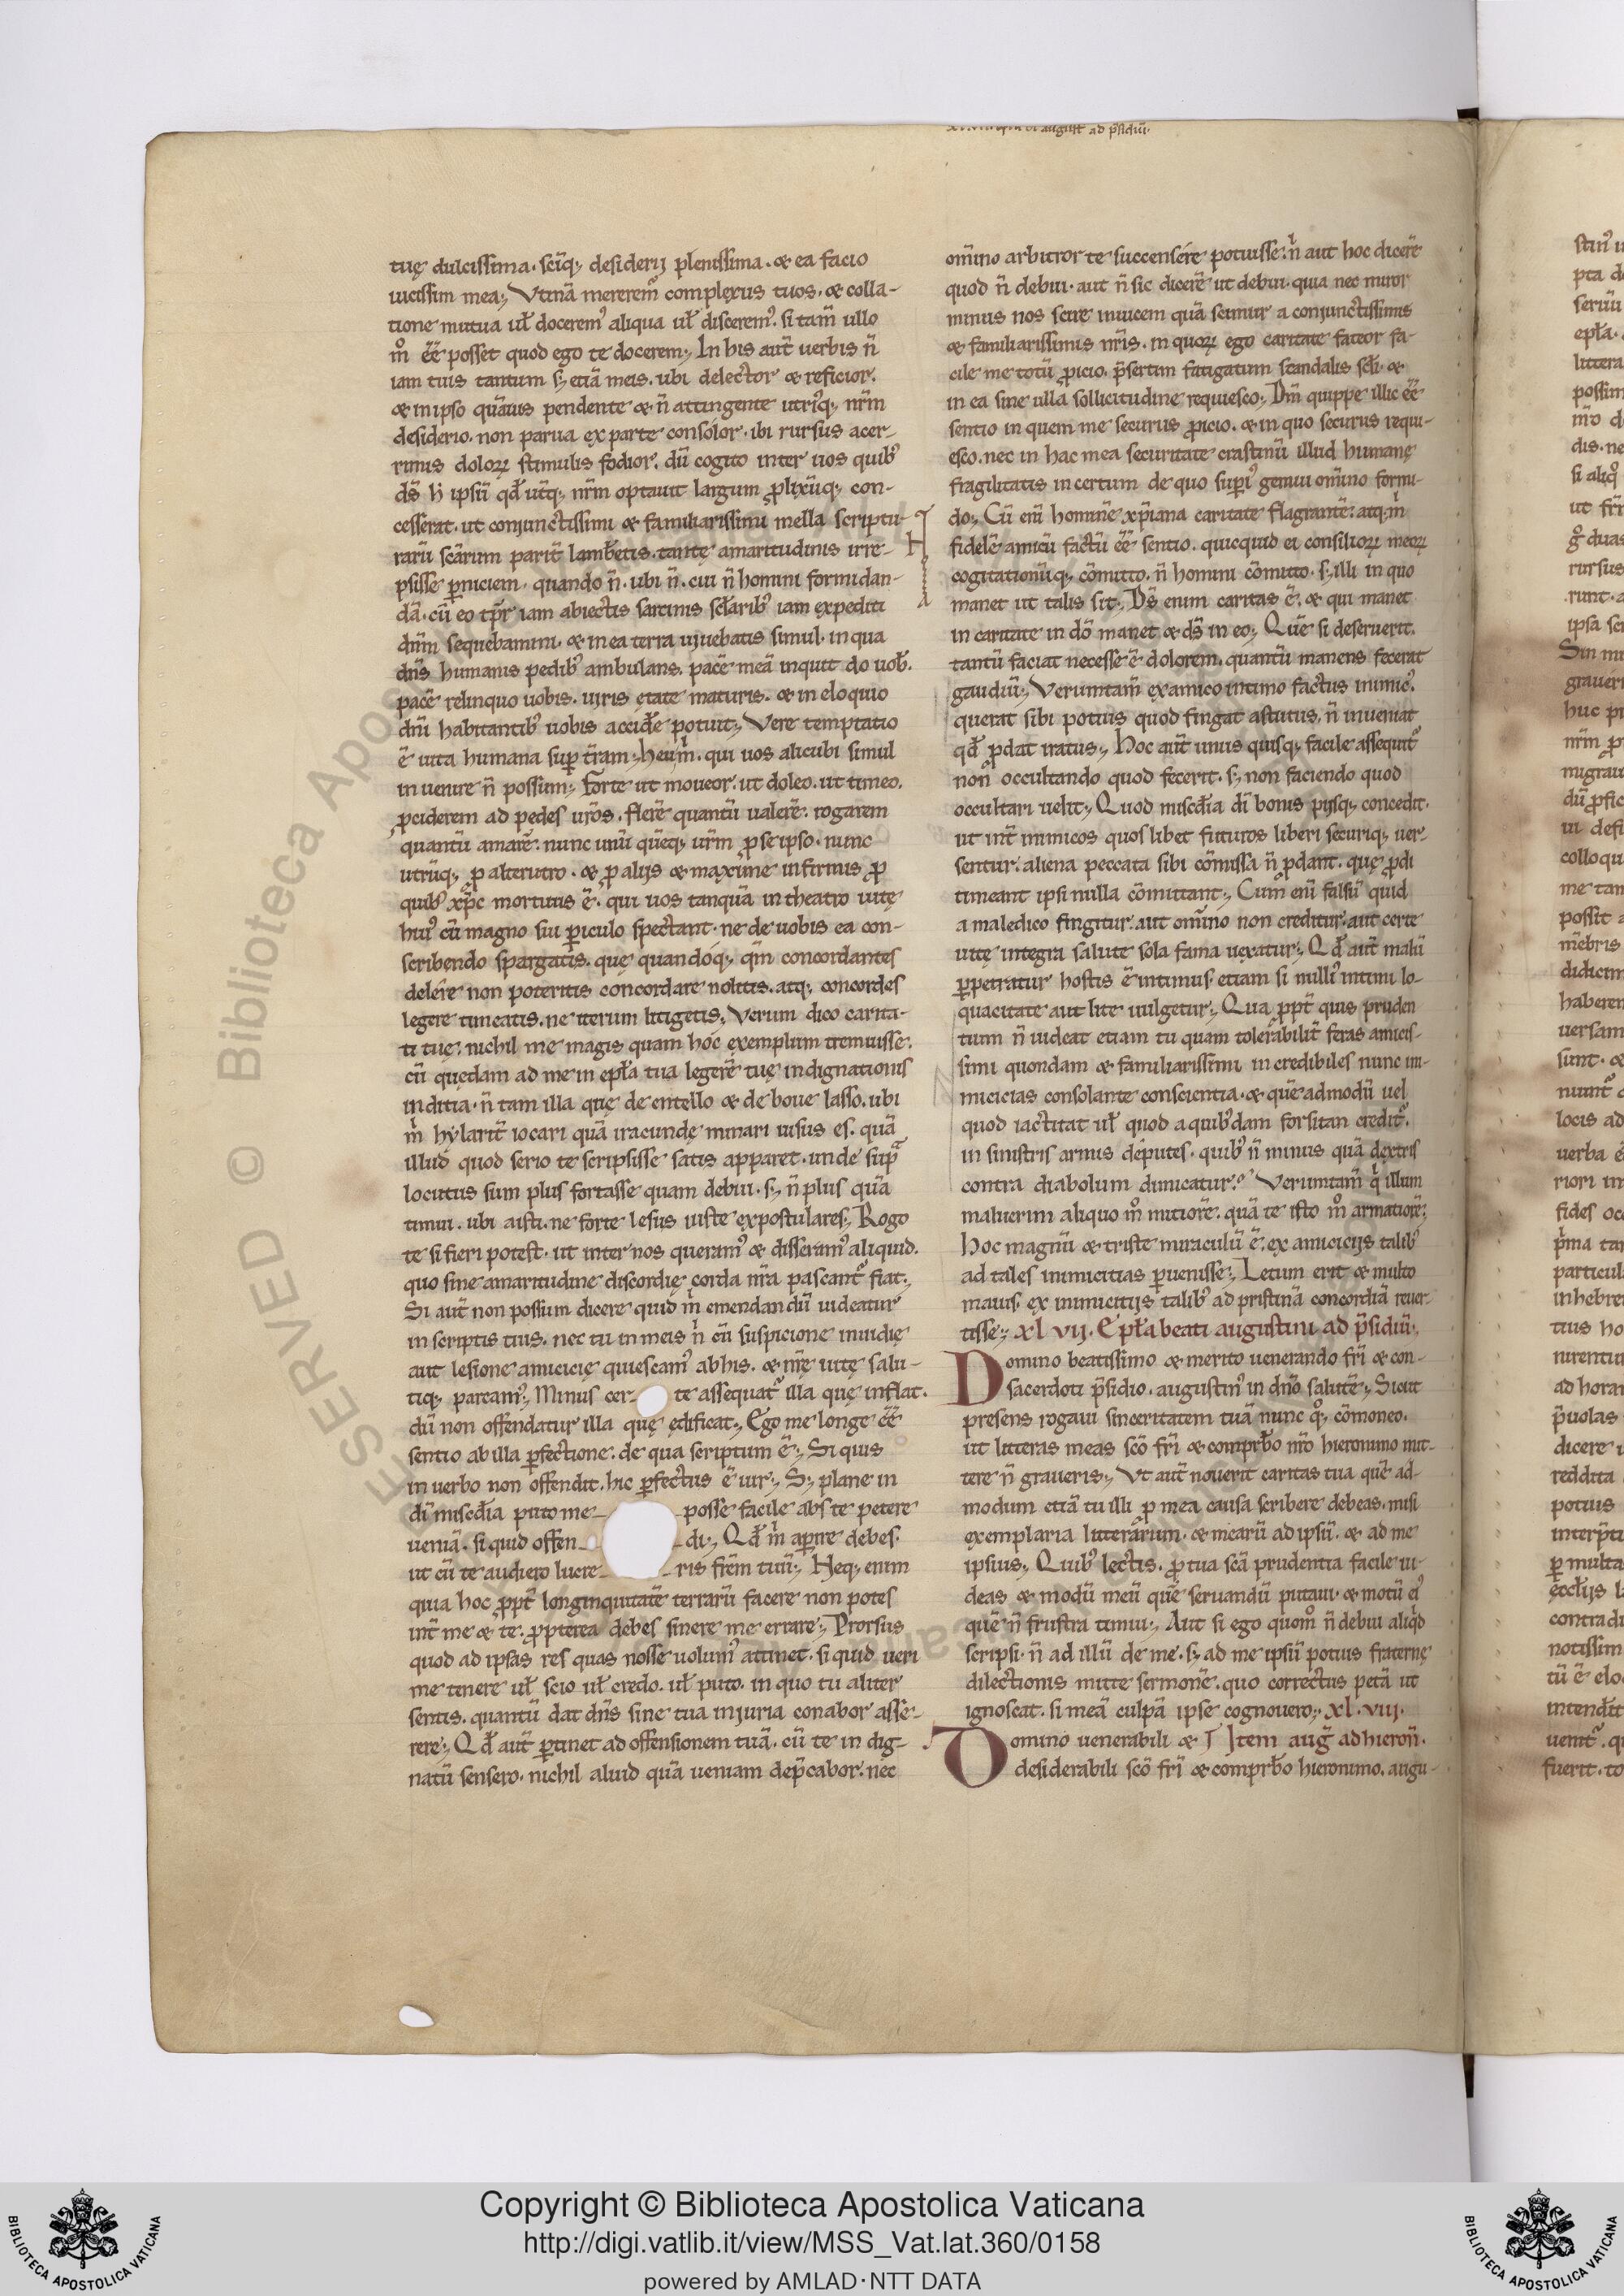 tuę dulcissima. scĩq; desiderij plenissima. & ea facio
uictissim mea; Vtinã mererem᷒ complexus tuos. & colla-
tione mutua uł docerem᷒ aliqua uł discerem᷒. si tam̃ ullo
m̊ ẽẽ posset quod ego te docerem; In his aut̃ uerbis ñ
iam tuis tantum s; etiã meis. ubi delector & reficior.
& in ipso quãuis pendente & ñ attingente utriq; nr̃m
desiderio. non parua ex parte consolor. ibi rursus acer-
rimis dolorꝝ stimulis fodior. dũ cogito inter uos quib᷒
ds̃ h ipsũ qđ utq; nr̃m optauit largum ꝓlixũq; con-
cesserat. ut conjunctissimi & familiarissimi mella scriptu-
rarũ scãrum parit̃ lamb&is. tantę amaritudinis irre-
psisse ꝑniciem. quando ñ. ubi ñ. cui ñ homini formidan-
dã. cũ eo tp̃r iam abiectis sarcinis scłarib᷒ iam expediti
dñm sequebamini. & in ea terra ujuebatis simul. in qua
dñs humanis pedib᷒ ambulans. pacẽ meã inquit do uob̃.
pacẽ relinquo uobis. ujris ętate maturis. & in eloquio
dñi habitantib᷒ uobis accidẽ potuit; Vere temptatio
ẽ uita humana suꝑ t̃ram; heu m̃. qui uos alicubi simul
in uenire ñ possum; forte ut moueor. ut doleo. ut timeo.
ꝓciderem ad pedes ur̃os. flerẽ quantũ ualerẽ. rogarem
quantũ amarẽ. nunc unũ quẽq; ur̃m ꝓ se ipso. nunc
utrũq; ꝓ alterutro. & ꝓ alijs & maxime infirmis ꝓ
quib᷒ xp̃c mortuus ẽ. qui uos tanquã in theatro uitę
hui᷒ cũ magno sui ꝑiculo spectant. ne de uobis ea con-
scribendo spargatis. quę quandóq; qm̃ concordantes
delére non poteritis concordare nolitis. atq; concordes
legere timeatis. ne iterum litigetis; Verum dico carita-
ti tuę. nichil me magis quam hoc exemplum tremuisse.
cũ quędam ad me in epła tua legerẽ tuę indignationis
inditia. ñ tam illa quę de entello & de boue lasso. ubi
m̃ hylarit̃ iocari quã iracundę minari uisus es. quã
illud quod serio te scripsisse satis apparet. unde supᵃ
locutus sum plus fortasse quam debui. s; ñ plus quã
timui. ubi aisti. ne forte lesus iuste expostulares; Rogo
te si fieri potest. ut inter nos queram᷒ & disseram᷒ aliquid.
quo sine amaritudine discordię corda nr̃a pascant᷒ fiat;
Si aut̃ non possum dicere quid m̃ emendandũ uideatur
in scriptis tuis. nec tu in meis ñ cũ suspicione inuidię
aut lesione amicicię quiescam᷒ ab his. & nr̃ę uitę salu-
tiq; paream᷒; Minus cer- te assequat᷒ illa quę inflat.
dũ non offendatur illa quę ędificat; Ego me longe ẽẽ
sentio ab illa ꝑfectione. de qua scriptum ẽ; Si quis
in uerbo non offendit. hic ꝑfectus ẽ uir; S; plane in
dĩ miscđia puto me- posse facile abs te petere
ueniã. si quid offen- di; Qđ m̃ aꝑire debes.
ut cũ te audiero lucre- ris frẽm tuũ; Neq; enim
quia hoc ꝓpt̃ longinquitatẽ terrarũ facere non potes
int̃ me & te. ꝓpterea debes sinere me errare; Prorsus
quod ad ipsas res quas nosse uolum᷒ attinet. si quid ueri
me tenere uł scio uł credo. uł puto. in quo tu aliter
sentis. quantũ dat dñs sine tua injuria conabor asse-
rere; Qđ aut̃ ꝑtinet ad offensionem tuã. cũ te in dig-
natũ sensero. nichil aliud quã ueniam dep̃cabor. nec
august̃ ad p̃sidiũ.
om̃ino arbitror te succensére potuisse. ñ aut hoc dicerẽ
quod ñ debui. aut ñ sic dicerẽ ut debui. quia nec miror
minus nos scire inuicem quã scimur a conjunctissimis
& familiarissimis nr̃is. in quorꝝ ego caritate fateor fa-
cile me totũ ꝓicio. p̃sertim fatigatum scandalis scłi. &
in ea sine ulla sollicitudine requiesco; Dm̃ quippe illic ẽẽ
sentio in quem me securus ꝓicio. & in quo securus requi-
esco. nec in hac mea securitate crastinũ illud humanę
fragilitatis incertum de quo suꝑi᷒ gemui om̃ino formi-
do; Cũ enĩ hominẽ xp̃iana caritate flagrantẽ. atq; m̃
fidelẽ amicũ factũ ẽẽ sentio. quicquid ei consiliorꝝ meorꝝ
cogitationũq; cõmitto. ñ homini cõmitto. s; illi in quo
manet ut talis sit; Ds̃ enim caritas ẽ. & qui manet
in caritate in dõ manet & ds̃ in eo; Quẽ si deseruerit.
tantũ faciat necesse ẽ dolorem. quantũ manens fecerat
gaudiũ; Verumtam̃ ex amico intimo factus inimic᷒.
querat sibi potius quod fingat astutus. ñ inueniat
qđ ꝓdat iratus; Hoc aut̃ unus quisq; facile assequit᷒
non occultando quod fecerit. s; non faciendo quod
occultari uelit; Quod miscđia dĩ bonis pijsq; concedit.
ut int̃ inimicos quos libet futuros liberi securiq; uer-
sentur. aliena peccata sibi cõmissa ñ ꝓdant. quę ꝓdi
timeant ipsi nulla cõmittant; Cum enĩ falsũ quid
a maledico fingitur. aut om̃ino non creditur. aut certe
uitę integra salute sola fama uexatur; Qđ aut̃ malũ
ꝑpetratur hostis ẽ intimus. etiam si nulli᷒ intimi lo-
quacitate aut lite uulgetur; Qua ꝓpt̃ quis pruden
tum ñ uideat etiam tu quam tolerabilit̃ feras amicis-
simi quondam & familiarissimi incredibiles nunc ini-
micicias consolante conscientia. & quẽadmodũ uel
quod iactitat uł quod a quib᷒dam forsitan credit᷒.
in sinistris armis députes. quib᷒ ñ minus quã dextris
contra diabolum dimicatur; Verumtam̃ q̃ illum
maluerim aliquo m̊ mitiorẽ. quã te isto m̊ armatiorẽ;
Hoc magnũ & triste miraculũ ẽ. ex amicicijs talib᷒
ad tales inimicitias ꝑuenisse; Letum erit & multo
maius. ex inimicitijs talib᷒ ad pristinã concordiã reuer-
tisse; xl vij. Epła beati augustini ad p̃sidiũ.
Domino beatissimo & merito uenerando frĩ & con-
sacerdoti p̃sidio. augustin᷒ in dño salutẽ; Sicut
presens rogaui sinceritatem tuã nunc q̊; cõmoneo.
ut litteras meas scõ frĩ & comprb̃o nr̃o hieronimo mit-
tere ñ graueris; Vt aut̃ nouerit caritas tua quẽ ad-
modum etiã tu illi ꝓ mea causa scribere debeas. misi
exemplaria litterãrum. & mearũ ad ipsũ. & ad me
ipsius; Quib᷒ lectis. ꝓ tua scã prudentia facile ui-
deas & modũ meũ quẽ seruandũ putaui. & motũ ei᷒
quẽ ñ frustra timui; Aut si ego quom̊ ñ debui aliqd
scripsi. ñ ad illũ de me. s; ad me ipsũ potius fraternę
dilectionis mitte sermonẽ. quo correctus petã ut
ignoscat. si meã culpã ipse cognouero; xl. viij.
Domino uenerabili & Item aug̃ ad hieroñ.
desiderabili scõ frĩ & comprb̃o hieronimo. augu-
Copyright © Biblioteca Apostolica Vaticana
http://digi.vatlib.it/view/MSS_Vat.lat.360/0158
powered by AMLAD·NTT DATA
BIBLIOTECA APOSTOLICA VATICANA
BIBLIOTECA APOSTOLICA VATICANA